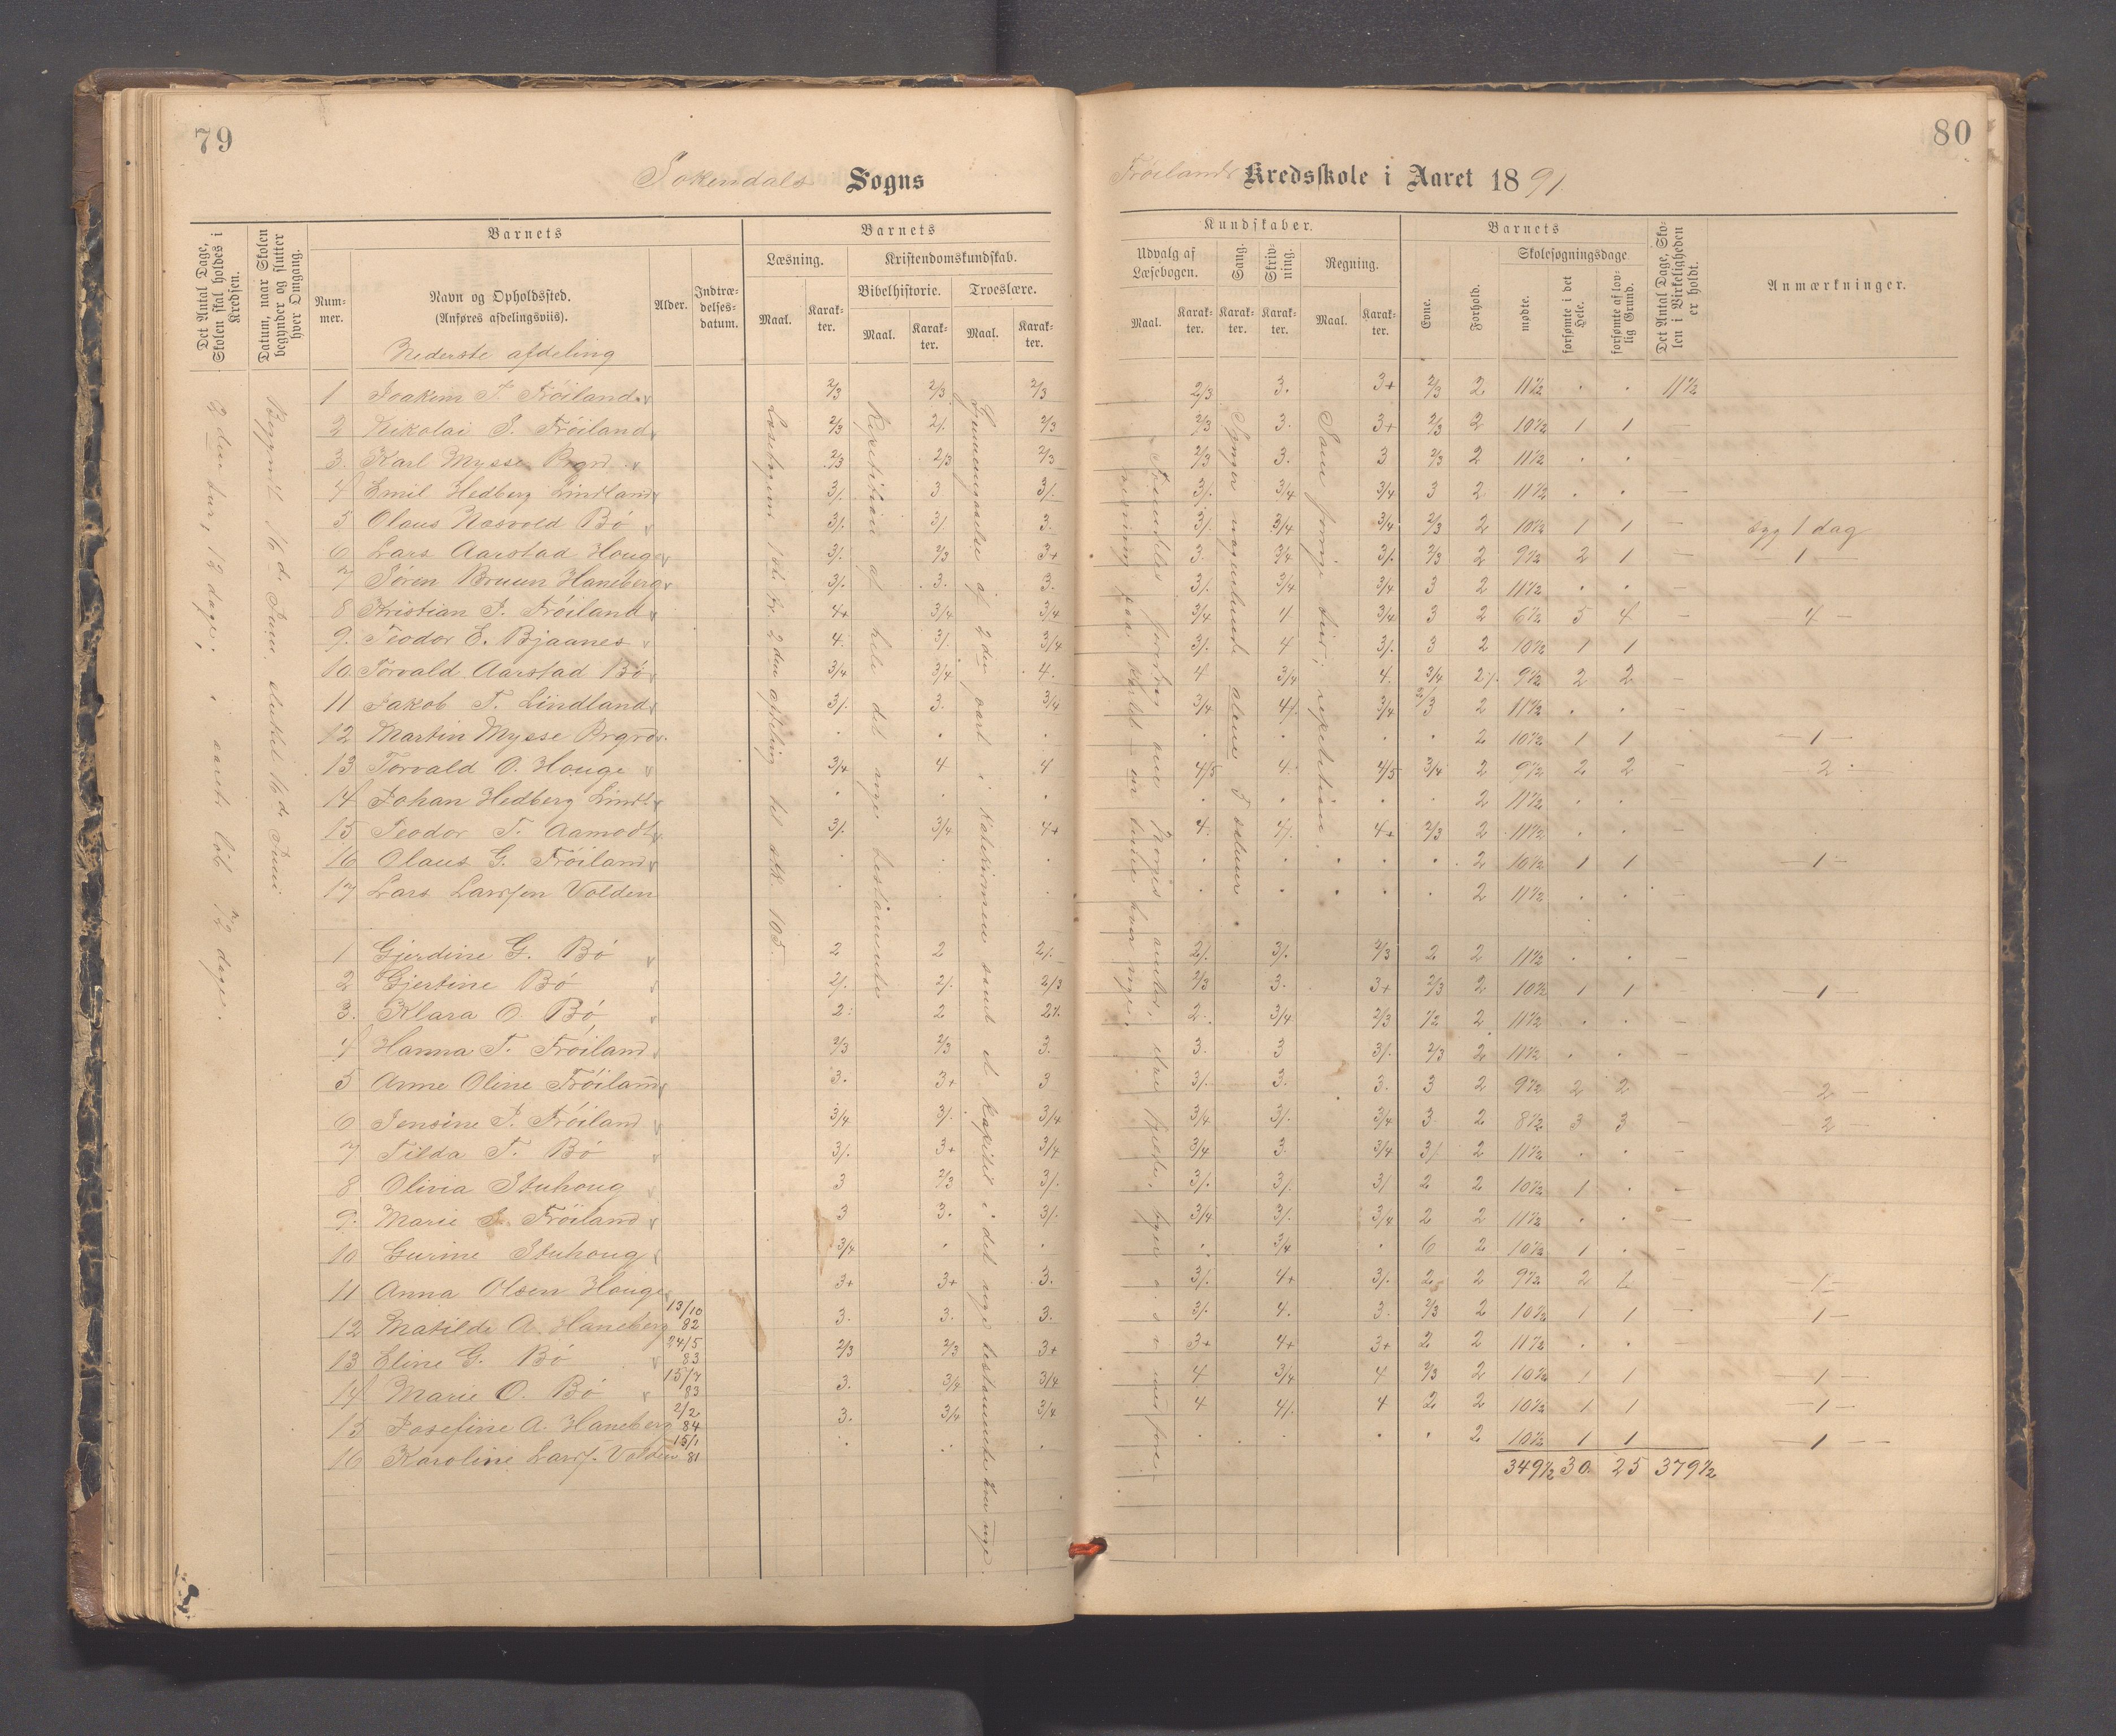 79
80
Sokendals Sogns
Frøilands Kredsskole i Aaret 1891
Det Antal Dage, Skolen skal holdes i Kredsen.
Datum, naar Skolen begynder og slutter hver Omgang.
Barnets
Num-mer.
Navn og Opholdssted.
(Anføres afdelingsviis).
Alder.
Indtræ-delses-datum.
Barnets
Læsning.
Maal.
Karak-ter.
Kristendomskundskab.
Bibelhistorie.
Maal.
Karak-ter.
Troeslære.
Maal.
Karak-ter.
Kundskaber.
Udvalg af Læsebogen.
Maal.
Karak-ter.
Sang.
Karak-ter.
Skriv-ning.
Karak-ter.
Regning.
Maal.
Karak-ter.
Barnets
Evne.
Forhold.
Skolesøgningsdage
mødte.
forsømte i det Hele.
forsømte af lov-lig Grund.
Det Antal Dage, Sko-len i Virkeligheden er holdt.
Anmærkninger.
Nederste afdeling
1 Joakim T. Frøiland 2/3 2/3 2/3 2/3 3. 3+ 2/3 2 11½ . . 11½
2 Nikolai S. Frøiland 2/3 2/. 2/3 2/3 3. 3+ 2/3 2 10½ 1 1 —
3. Karl Mysse Prgrd. 2/3 2/3 2/3 2/3 3. 3 2/3 2 11½ . .
4 Emil Hedberg Lindland 3/. 3 3/. 3/. 3/4 3/4 3 2 11½ . . —
5 Olaus Næsvold Bø 3/. 3/. 3. 3/. 3/4 3/4 2/3 2 10½ 1 1 — syg 1 dag
6 Lars Aarstad Houge 3/. 2/3 3+ 3. 3/4 3/. 2/3 2 9½ 2 1 — 1 —
7 Søren Bruun Haneberg 3/. 3. 3. 3/. 3/4 3/4 3 2 11½ . . —
8 Kristian J. Frøiland 4+ 3/4 3/4 3/4 4 3/4 3 2 6½ 5 4 — — 4 —
9. Teodor E. Bjaanes 4. 3/. 3/4 3/. 4 3/. 3 2 10½ 1 1
10. Torvald Aarstad Bø 3/4 3/4 4. 4 3/4 4. 3/4 2/. 9½ 2 2 —
11 Jakob T. Lindland 3/. 3. 3/4 3/4 4/. 3/4 2/3 2 11½ . . —
12 Martin Mysse Prgrd. . . . . . . . 2 10½ 1 1 — 1 —
13 Torvald O. Houge 3/4 4 4 4/5 4. 4/5 3/4 2 9½ 2 2 — — 2 —
14 Johan Hedberg Lindl. . . . . . . . 2 11½ . . —
15 Teodor T. Aamodt 3/. 3/4 4+ 4. 4/. 4+ 2/3 2 11½ . . —
16 Olaus G. Frøiland . . . . . . . 2 10½ 1 1 — 1 —
17 Lars Larssen Volden . . . . . . . 2 11½ . . —
1 Gjerdine G. Bø 2 2 2/. 2/. 3/. 2/3 2 2 11½ . . —
2 Gjertine Bø 2/. 2/. 2/3 2/3 3. 3+ 2/3 2 10½ 1 1 — 1 —
3. Klara O. Bø 2. 2 2/. 2. 3/4 2/3 ½ 2 11½ . . —
4 Hanna T. Frøiland 2/3 2/3 3. 3. 3 3/. 2/3 2 11½ . . —
5 Anne Oline Frøiland 3. 3+ 3 3/. 3. 3. 3 2 9½ 2 2 — 2 —
6 Jensine P. Frøiland 3/4 3/. 3/4 3/4 3/. 3/4 3 2 8½ 3 3 — — 2 —
7 Tilda T. Bø 3/. 3+ 3/4 3/4 3. 3/4 3/ 2 11½ . . —
8 Olivia Stuhoug 3 2/3 3/. 3/. 3/. 3/ 2 2 10½ 1 . —
9. Marie J. Frøiland 3 3. 3/. 3/4 3/. 3/4 2 2 11½ . . —
10 Gurine Stuhoug 3/4 . . . 3/4 . 6 2 10½ 1 . —
11 Anna Olsen Houge 3+ 3+ 3. 3/. 4+ 3/. 2 2 9½ 2 1 — 1 —
12 Matilde A. Haneberg 13/10 82 3. 3. 3. 3/. 4. 3. 2/3 2 10½ 1 1 — 1 —
13 Eline G. Bø 24/5 83 2/3 2/3 3+ 3+ 4+ 3+ 2 2 11½ . . —
14 Marie O. Bø 15/7 83 3. 3/4 3/4 4 3/4 4 2/3 2 10½ 1 1 — 1 —
15 Josefine A. Haneberg 2/2 84 3. 3/4 3/4 4 4/. 4 2 2 10½ 1 1 — 1 —
16 Karoline Larss. Volden 15/1 81 . . . . . . . 2 10½ 1 1 — 1 —
349½ 30. 25 379½
2den tur, 12 dage; i aarets løb 72 dage.
Begyndt 1ste Juni, sluttet 16de Juni
Læsebogen 1ste tr. 2den afdeling til stk. 105.
Repetition af hele det nye testamente
Gjennemgaaelse af 2den part i Katekismen samt et kapitel i det nye testamente hver uge.
Fremdeles foredrag over Norges amter, elve, fjelde, byer o. s. v. som før
Synger nogenlunde alene 7 salmer.
Som forrige tur; repetition.